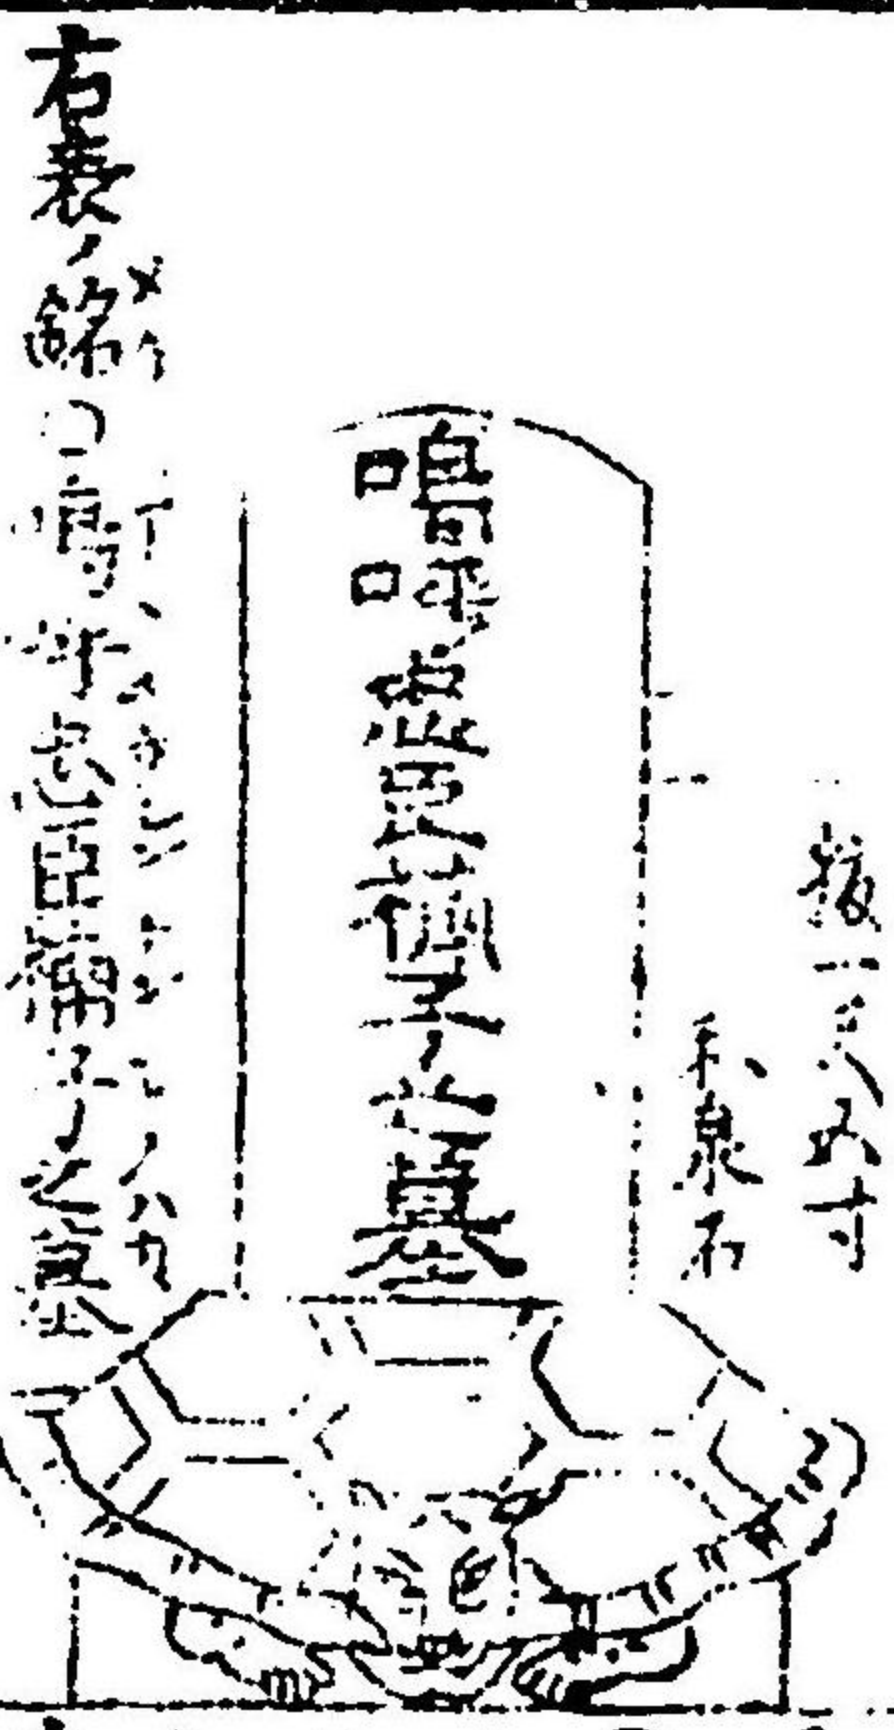 一尺五寸
和泉石
嗚呼忠臣楠子之墓
右表ノ銘〇嗚呼忠臣楠子之墓